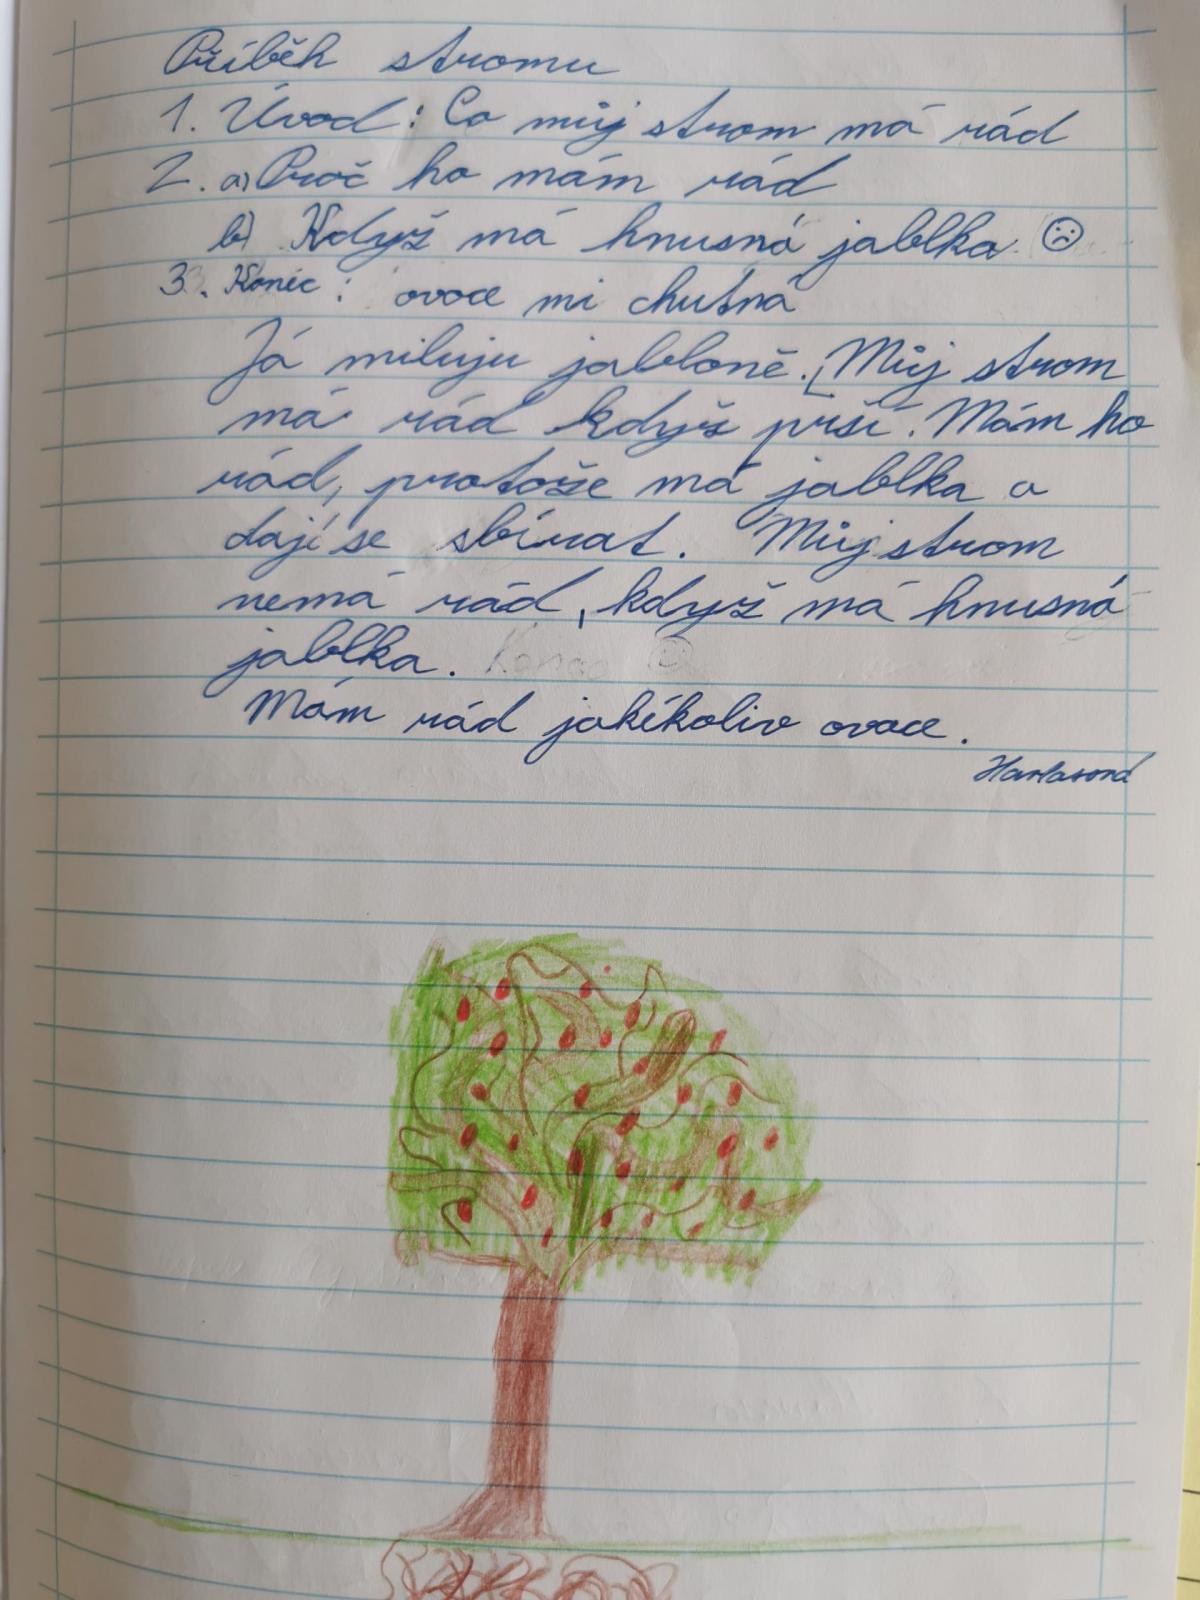 Příběh stromu
1. Úvod: Co můj strom má rád
2. a) Proč ho mám rád
b) Když má hnusná jablka ☹
3. Konec: ovoce mi chutná
Já miluju jabloně. [Můj strom
má rád když prší. Mám ho
rád, protože má jablka a
dají se sbírat. Můj strom
nemá rád, když má hnusná
jablka.
Mám rád jakékoliv ovoce.